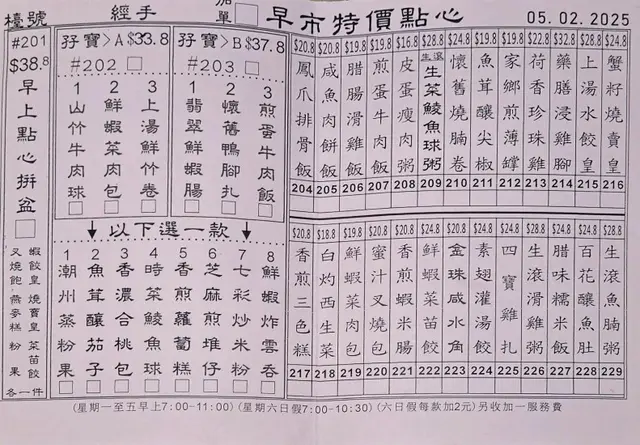 檯號 經手 加單 早市特價點心 05.02.2025
#201
$38.8
早上點心拼盆
蝦餃皇 燒賣皇 菜苗餃
叉燒飽 燕麥糕 粉果
各一件
孖寶>A $33.8
#202
1 山竹牛肉球
2 鮮蝦菜肉包
3 上湯鮮竹卷
孖寶>B $37.8
#203
1 翡翠鮮蝦腸
2 懷舊鴨腳扎
3 煎蛋牛肉飯
以下選一款
1 潮州蒸粉果
2 魚茸釀茄子
3 香濃合桃包
4 時菜鯪魚球
5 香煎蘿蔔糕
6 芝麻煎堆仔
7 七彩炒米粉
8 鮮蝦炸雲吞
$20.8 鳳爪排骨飯 204
$20.8 咸魚肉餅飯 205
$19.8 腊腸滑雞飯 206
$19.8 煎蛋牛肉飯 207
$16.8 皮蛋瘦肉粥 208
$28.8 生滾生菜鯪魚球粥 209
懷舊燒腩卷 210
魚茸釀尖椒 211
家鄉煎薄罉 212
荷香珍珠雞 213
$28.8 藥膳浸雞腳 214
$24.8 上湯水餃皇 215
$24.8 蟹籽燒賣皇 216
$20.8 香煎三色糕 217
$18.8 白灼西生菜 218
$19.8 鮮蝦菜肉包 219
$20.8 蜜汁叉燒包 220
$20.8 香煎蝦米腸 221
$24.8 鮮蝦菜苗餃 222
金珠咸水角 223
素翅灌湯餃 224
四寶雞扎 225
$28.8 生滾滑雞粥 226
腊味糯米飯 227
百花釀魚肚 228
$28.8 生滾魚腩粥 229
(星期一至五早上7:00-11:00)(星期六日假7:00-10:30)(六日假每款加2元)另收加一服務費